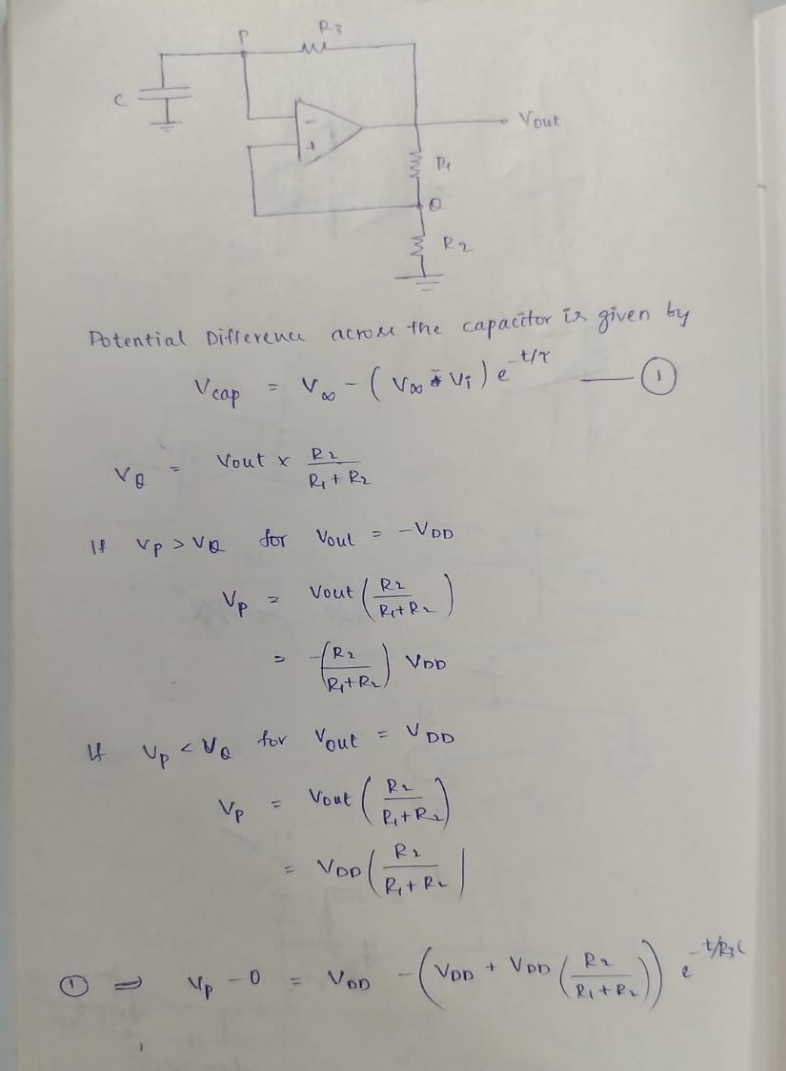 P R3
C
- Vout
+ R1
Q
R2
Potential Difference across the capacitor is given by
Vcap = V∞ - ( V∞ - Vi ) e^-t/τ —— ①
VQ = Vout x R2 / R1 + R2
If Vp > VQ for Vout = - VDD
Vp = Vout ( R2 / R1 + R2 )
= - ( R2 / R1 + R2 ) VDD
If Vp < VQ for Vout = VDD
Vp = Vout ( R2 / R1 + R2 )
= VDD ( R2 / R1 + R2 )
① ⇒ Vp - 0 = VDD - ( VDD + VDD ( R2 / R1 + R2 ) ) e^-t/R3C